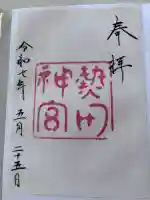 奉拝
熱田
神宮
令和七年 五月二十五日